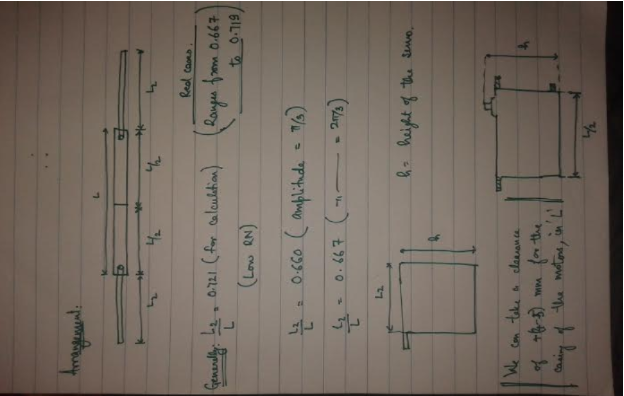 Arrangement:
L
L₂ L/2 L/2 L₂
Real cases.
Generally: L₂/L = 0.721 (for calculation) (Ranges from 0.667
to 0.719)
(Low RN)
L₂/L = 0.660 (amplitude = π/3)
L₂/L = 0.667 ( —"— = 2π/3)
L₂
h
h = height of the servo.
We can take a clearance
of mm for the
casing of the motors, in 'L'
h
L/2